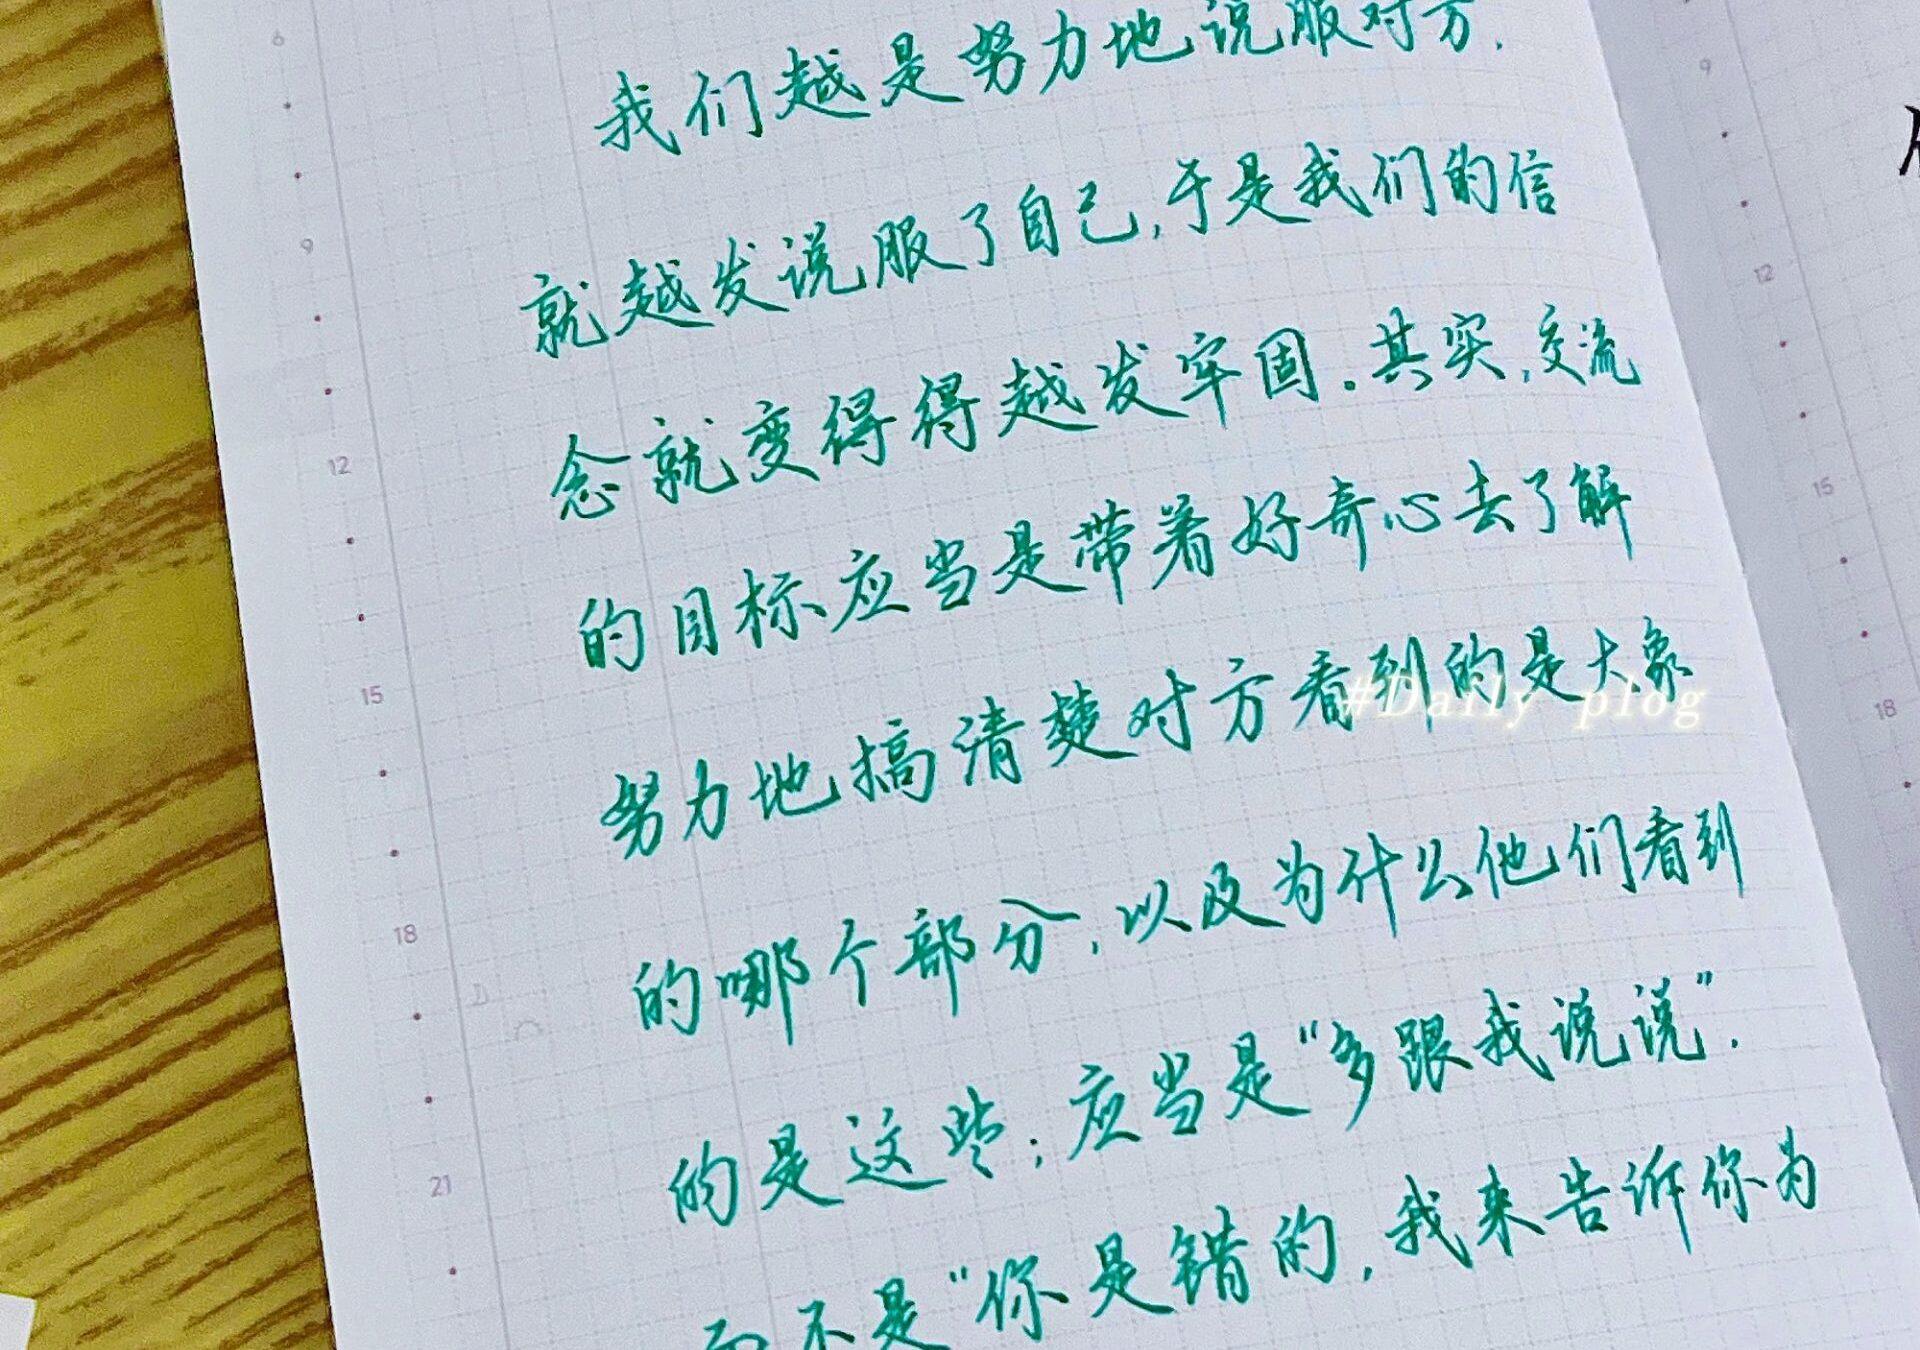 6
我们越是努力地说服对方，
就越发说服了自己，于是我们的信
9
念就变得得越发牢固。其实，交流
12
的目标应当是带着好奇心去了解
努力地搞清楚对方看到的是大象
15
#Daily plog
的哪个部分，以及为什么他们看到
18
的是这些；应当是“多跟我说说”.
21
而不是“你是错的，我来告诉你为
9
12
15
18